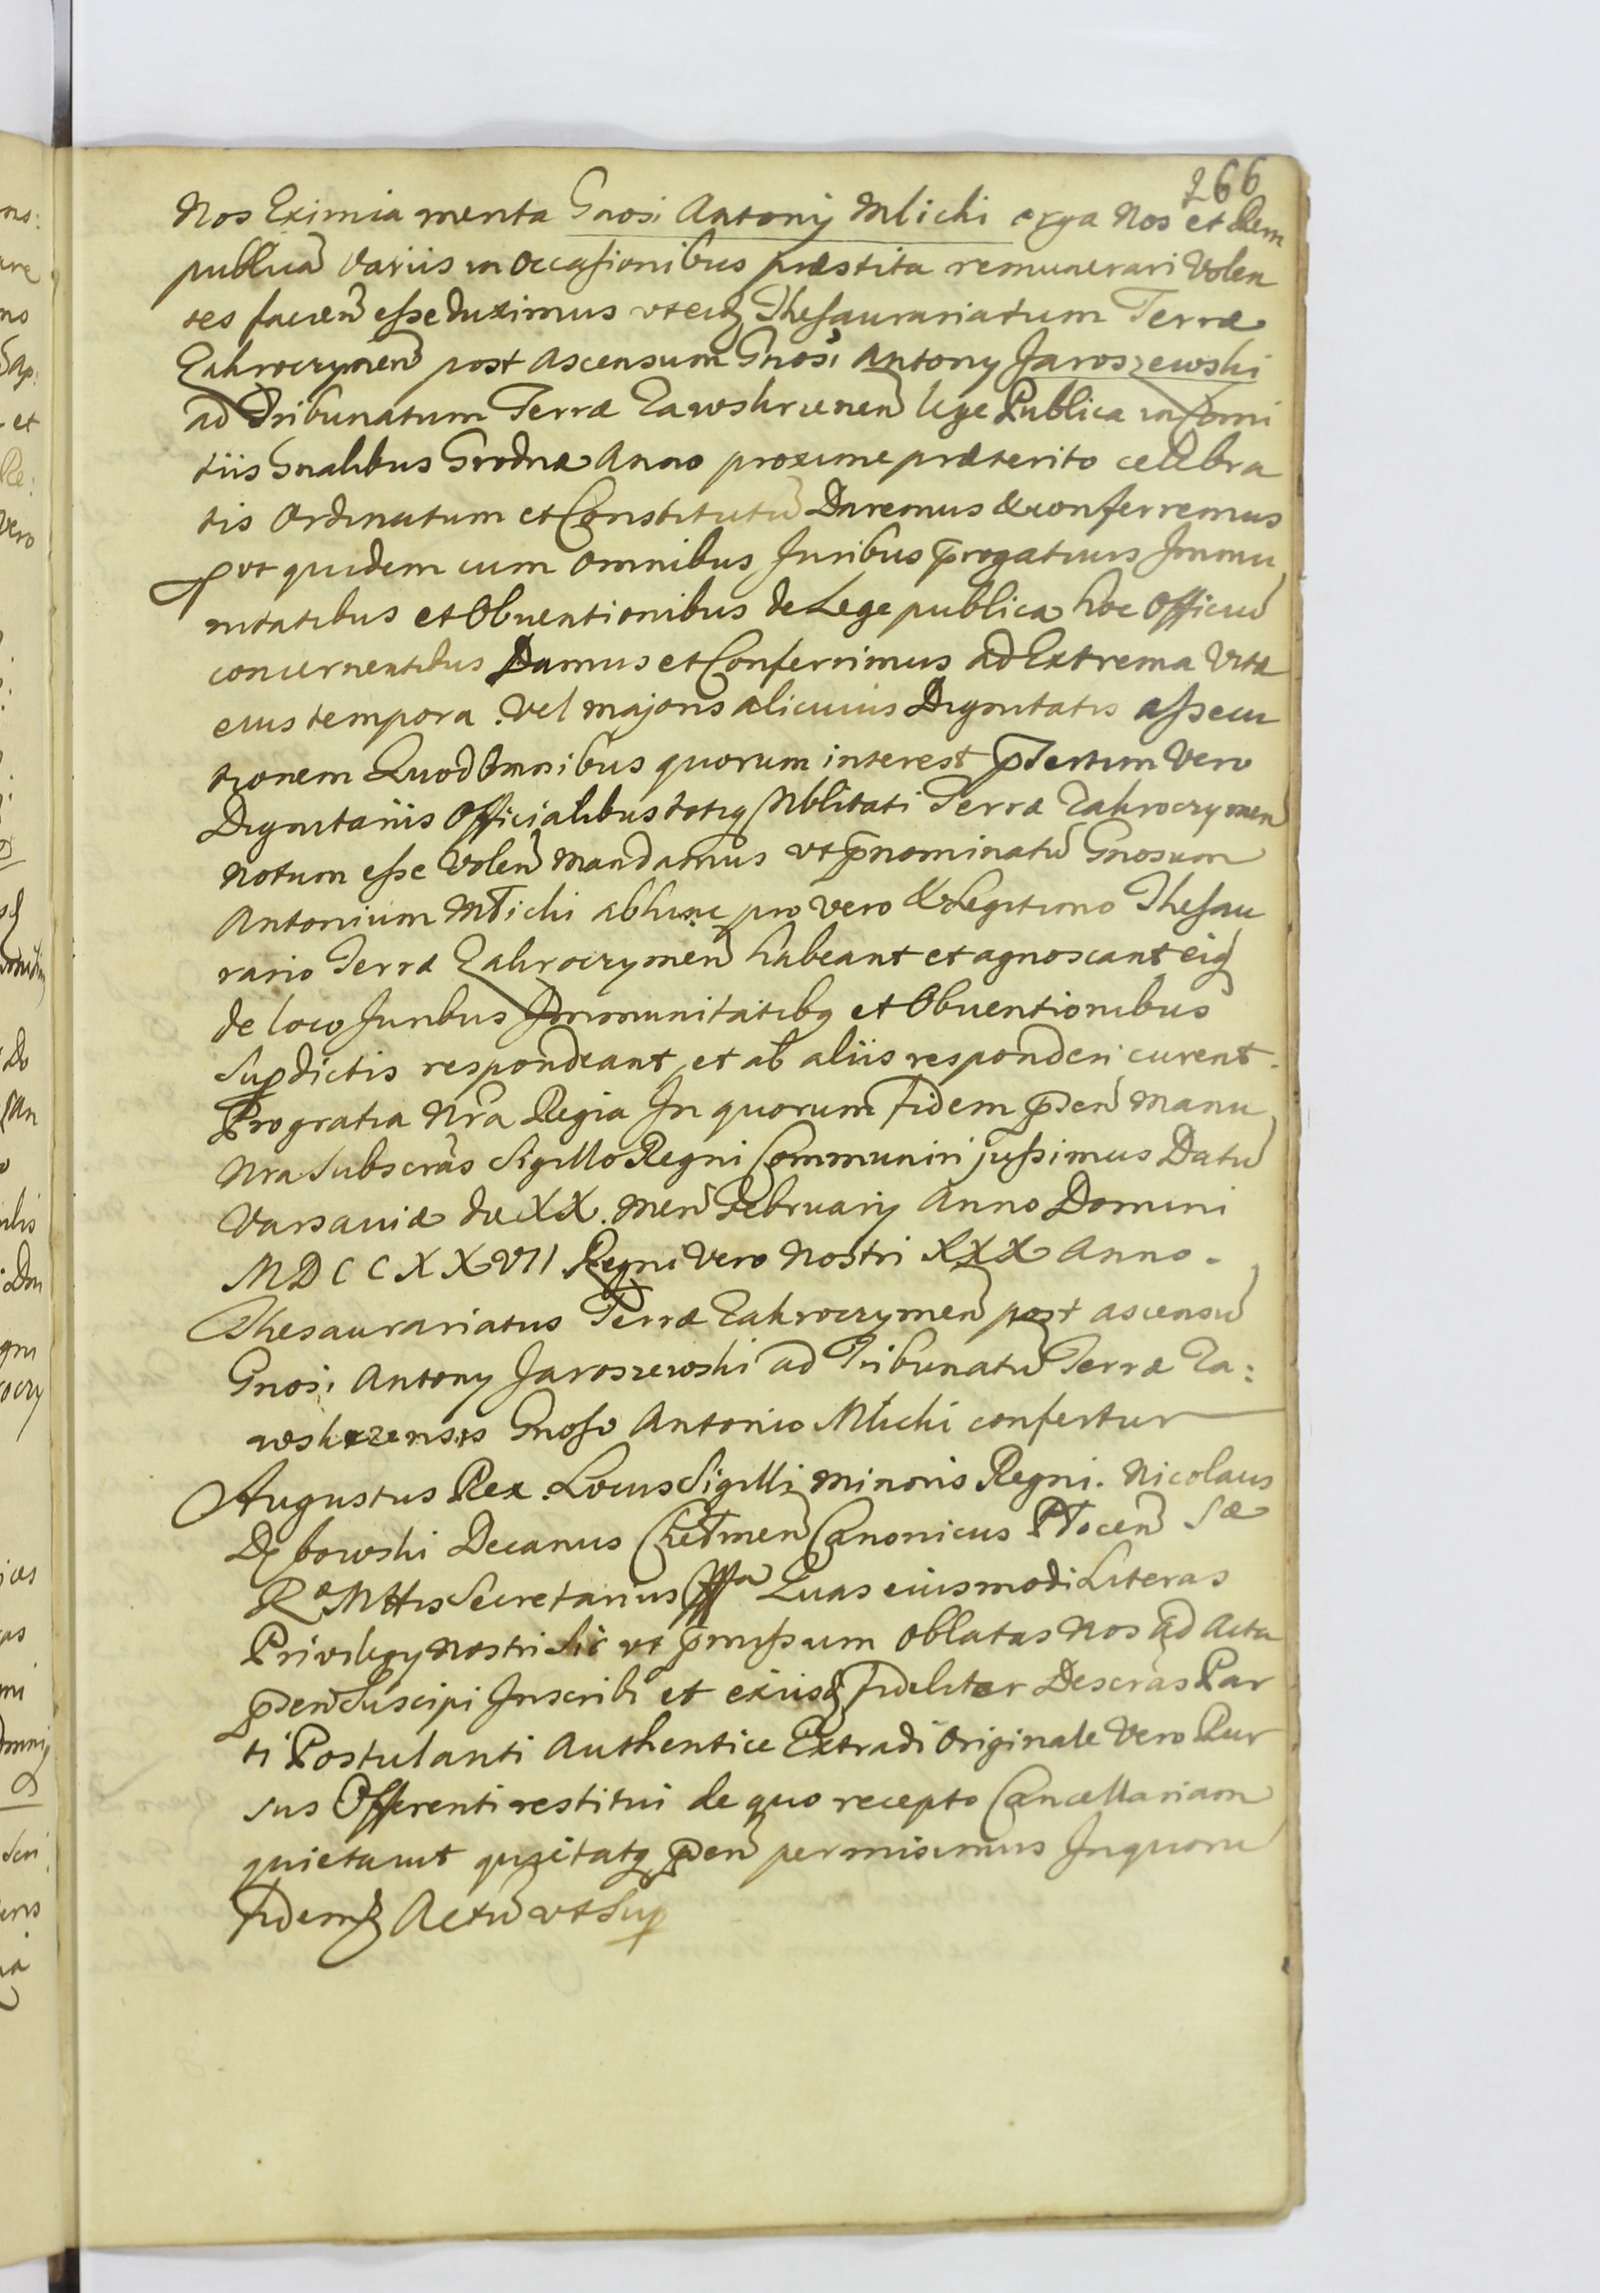 266
Nos Eximia merita Gnosi Antonij Mlicki erga Nos et Rem
publicã variis in Occasionibus præstita remunerari Volen
tes facien̄ esse duximus ut eidẽ Thesaurariatum Terræ
Zakroczymen̄ post ascensum Gnosi Antony Jaroszewski
ad Tribunatum Terræ Zawskrzenen̄ lege Publica in Comi
tiis Gnalibus Grodnæ Anno proxime præterito celebra
tis Ordinatum et Constitutũ Daremus & conferremus
prout quidem cum omnibus Juribus p̄rogativis Immu
nitatibus et Obventionibus de Lege publica hoc Officiũ
concernentibus Damus et Conferrimus ad Extrema Vitæ
eius tempora. Vel majoris alicuius Dignitatis assecu
tionem Quod Omnibus quorum interest p̄sertim Vero
Dignitariis Officialibus totiq Nblitati Terræ Zakroczymen̄
notum esse Volen̄ mandamus ut p̄nominatũ Gnosum
Antonium Młicki abhinc pro vero & Legitimo Thesau
rario Terræ Zakroczymen̄ habeant et agnoscant eiq
de loco Juribus Immunitatibq et Obventionibus
Supdictis respondeant, et ab aliis responderi curent.
Pro gratia Nrã Regia In quorum Fidem p̄sen̄ manu
Nra Subscras Sigillo Regni Communiri jussimus Datũ
Varsaviæ die XX. Men̄ February Anno Domini
MDCCXXVII Regni Vero Nostri XXX Anno.
Thesaurariatus Terræ Zakroczymen̄ post ascensũ
Gnosi Antony Jaroszewski ad Tribunatũ Terræ Za:
wskrzensis Gnoso Antonio Mlicki confertur
Augustus Rex. Locus Sigilli minoris Regni. Nicolaus
Dębowski Decanus Chełmen̄ Canonicus Płocen̄ Sæ
Ræ Mttis Secretarius Quas eiusmodi Literas
Privilegy Nostri Sic ut p̄missum oblatas Nos ad Acta
p̄sen̄ Suscipi Inscribi et exiisdẽ fideliter Descrãs Par
ti Postulanti Authentice Extradi Originale Vero Rur
sus Offerenti restitui de quo recepto Cancellariam
quietavit quietatq p̄sen̄ permisimus In quorũ
Fidem Actũ ut Sup